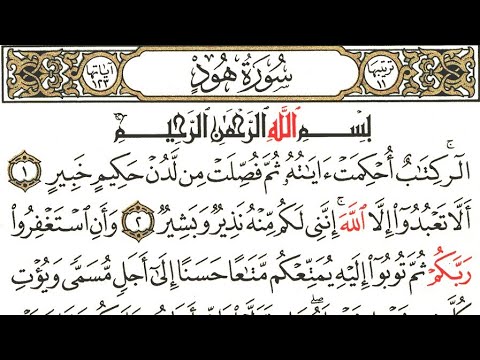 ترتيبها ١١
سُورَةُ هُودٍ
آياتها ١٢٣
بِسْمِ ٱللَّهِ ٱلرَّحْمَٰنِ ٱلرَّحِيمِ
الٓرۚ كِتَٰبٌ أُحْكِمَتْ ءَايَٰتُهُۥ ثُمَّ فُصِّلَتْ مِن لَّدُنْ حَكِيمٍ خَبِيرٍ ١
أَلَّا تَعْبُدُوٓا۟ إِلَّا ٱللَّهَۚ إِنَّنِى لَكُم مِّنْهُ نَذِيرٌ وَبَشِيرٌ ٢ وَأَنِ ٱسْتَغْفِرُوا۟
رَبَّكُمْ ثُمَّ تُوبُوٓا۟ إِلَيْهِ يُمَتِّعْكُم مَّتَٰعًا حَسَنًا إِلَىٰٓ أَجَلٍ مُّسَمًّى وَيُؤْتِ